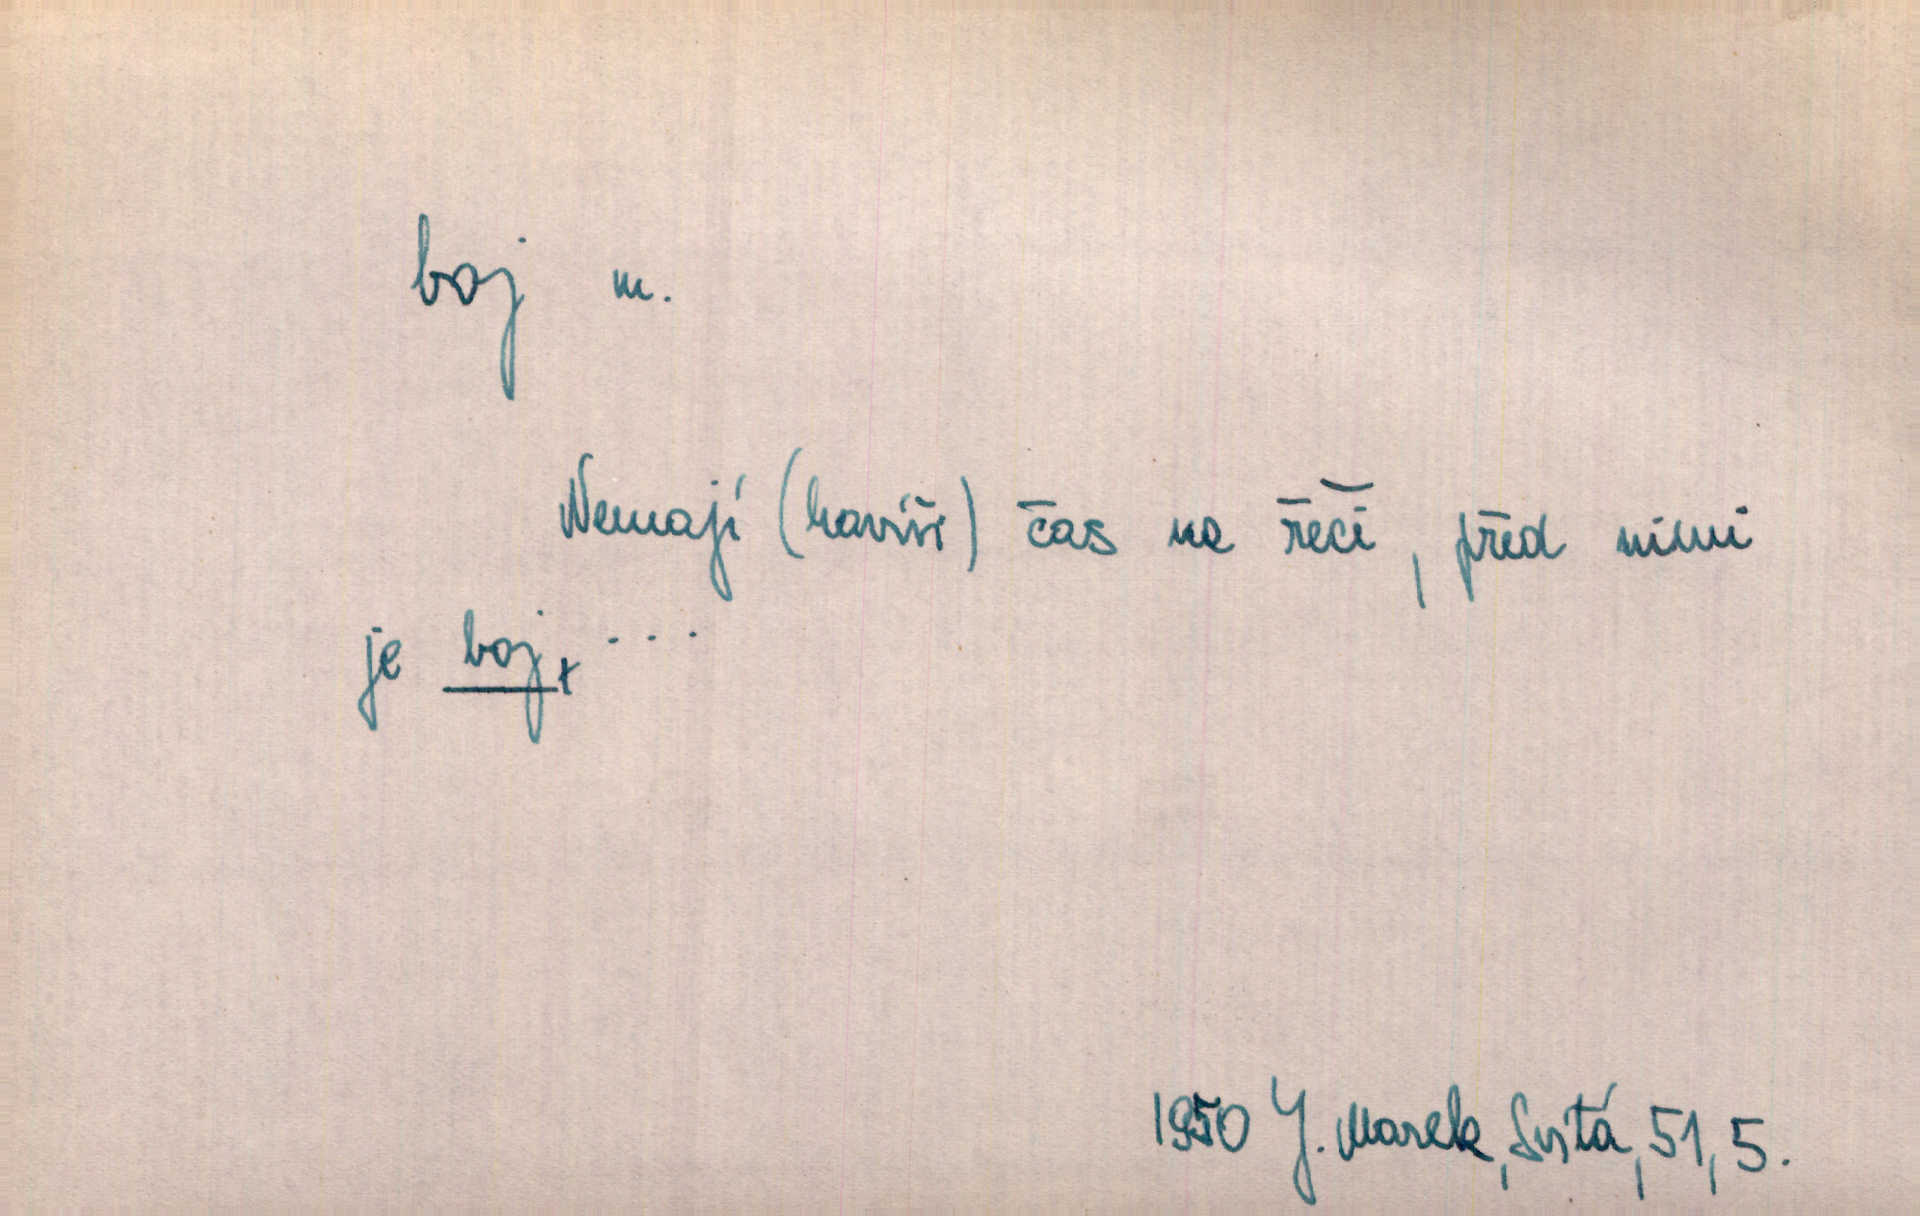 boj m.
Nemají (havíři) čas na řeči, před nimi
je boj, ...
1950 J. Marek, Svítá, 51, 5.